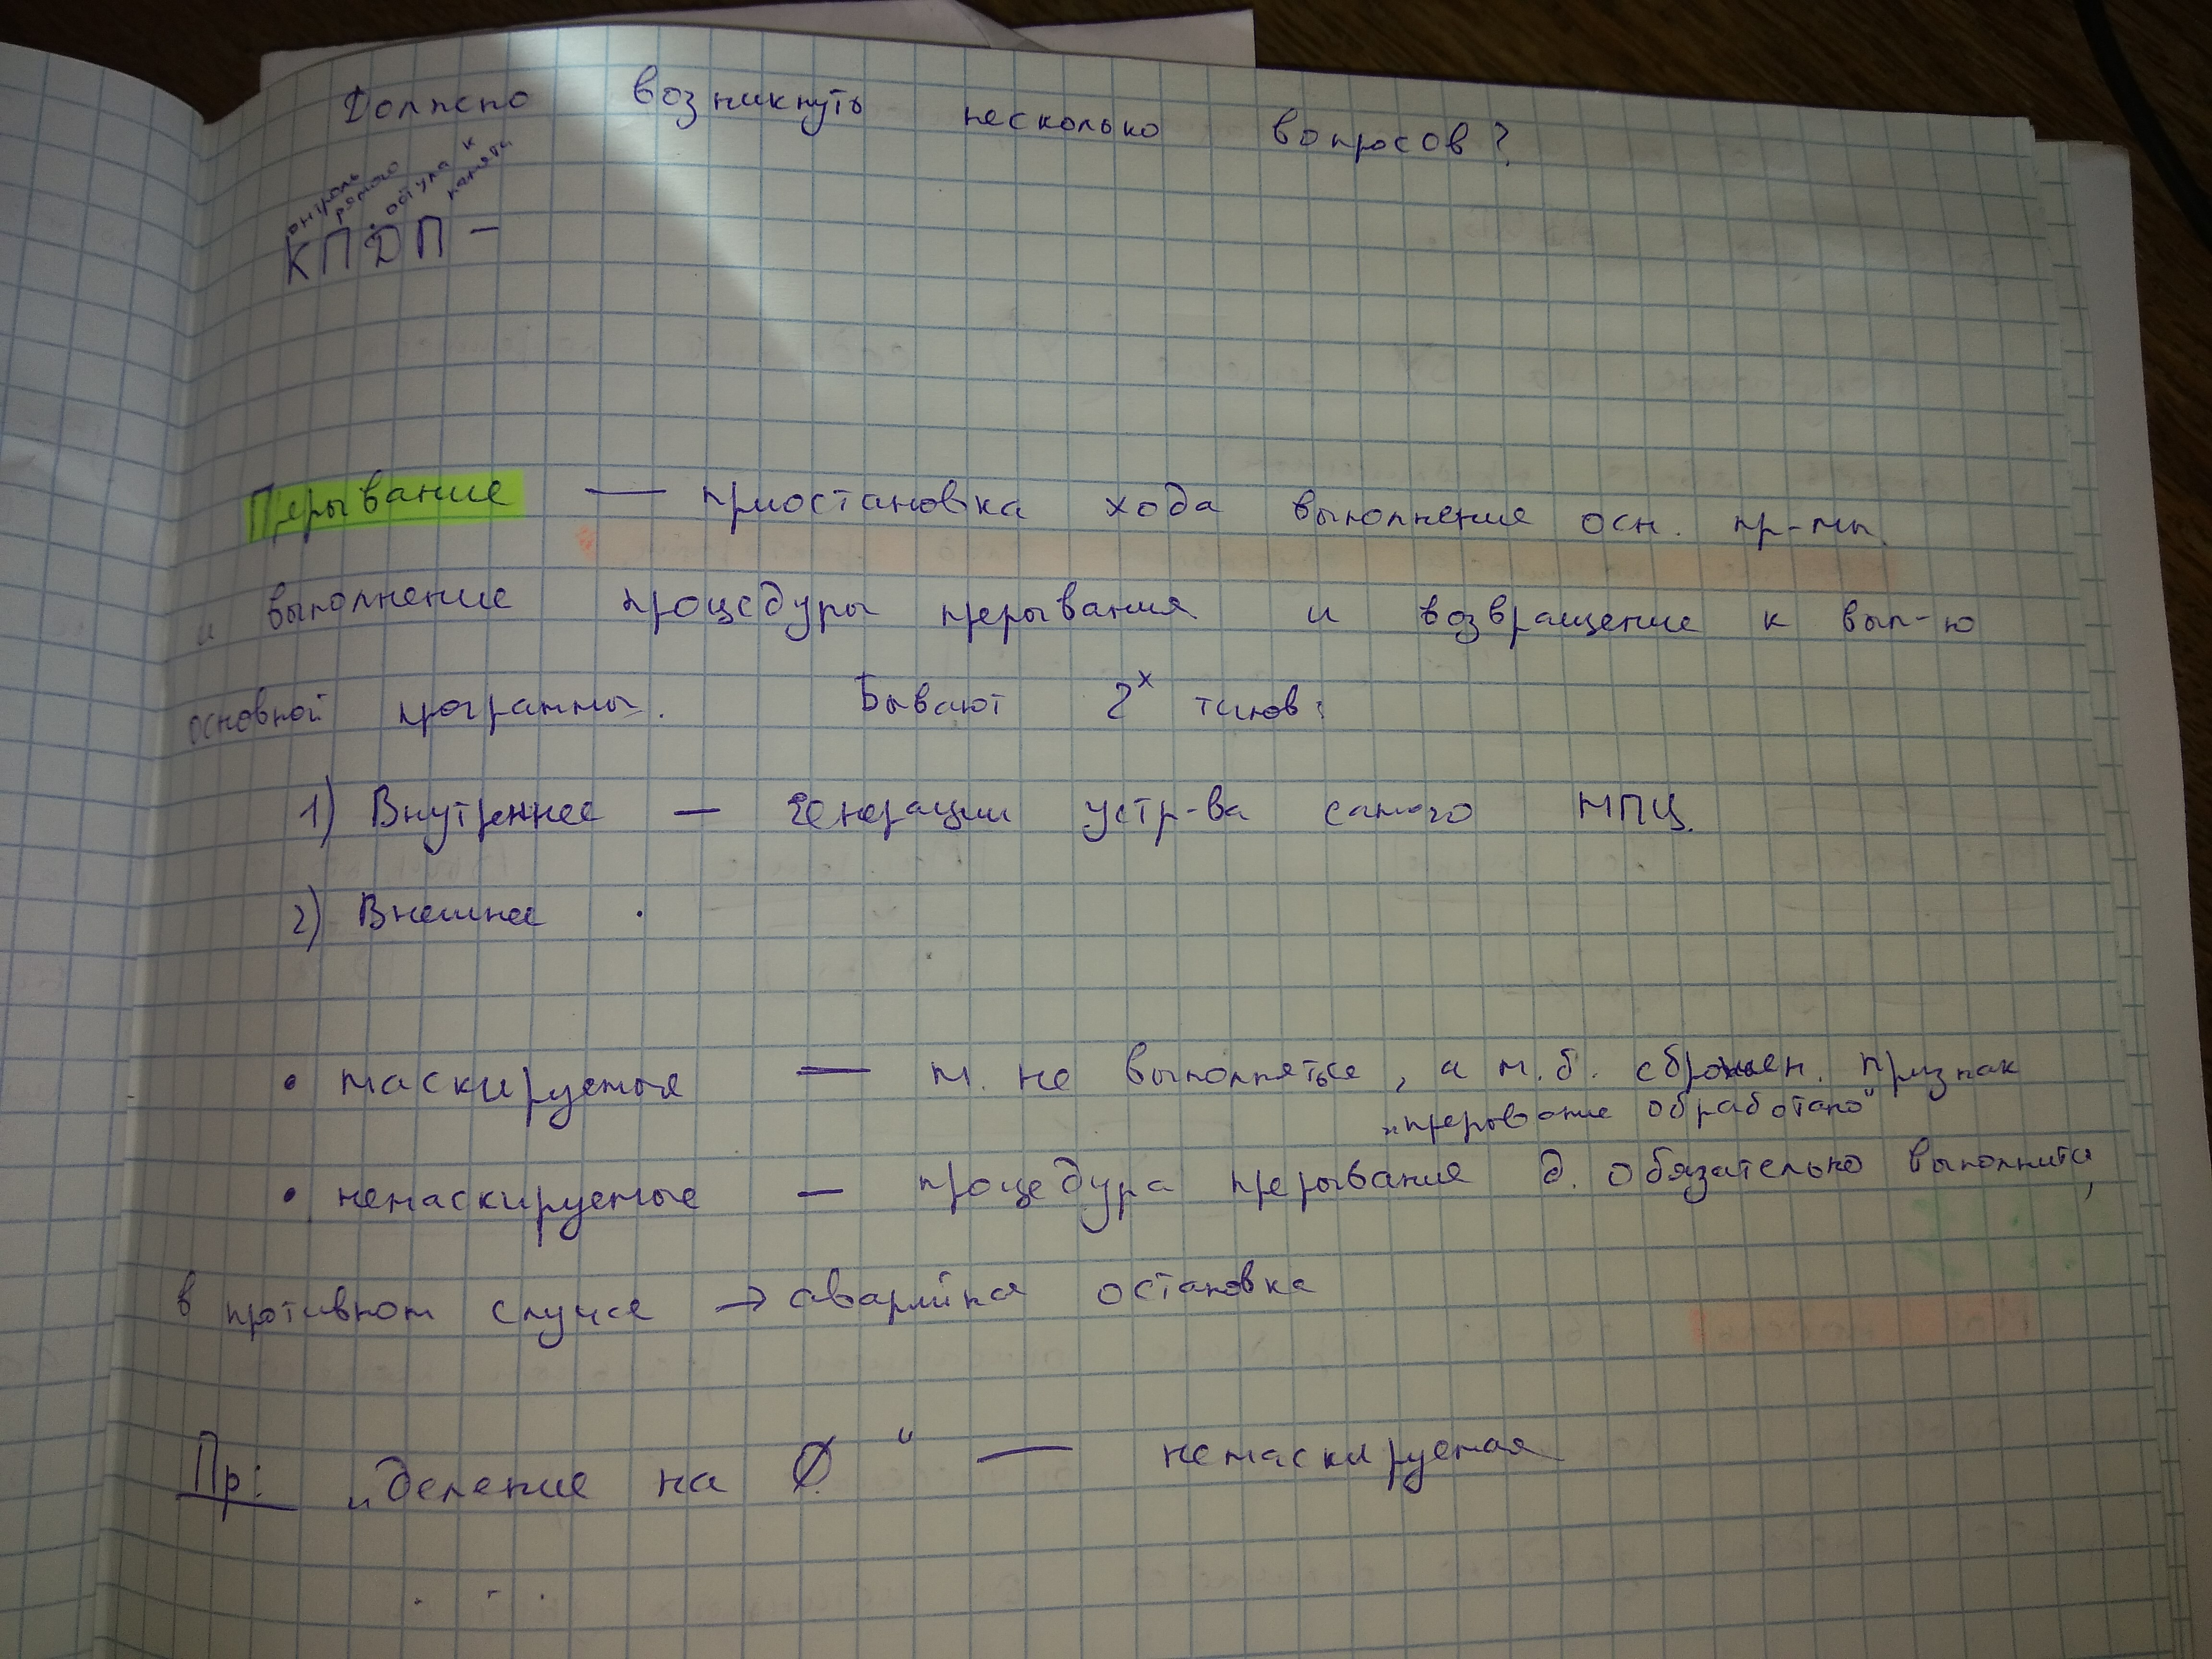 Должно возникнуть несколько вопросов?
онтроль рямого оступа к памяти
КПДП —
Прерывание — приостановка хода выполнения осн. пр-мы.
и выполнение процедуры прерывания и возвращение к вып-ю
основной программы. Бывают 2х типов:
1) Внутреннее — генерации устр-ва самого МПЦ.
2) Внешнее .
• маскируемые — м. не выполняться, а м.б. сброшен. признак
„прерывание обработано"
• немаскируемые — процедура прерывания д. обязательно выполнится,
в противном случае → аварийная остановка
Пр: „деление на 0" — немаскируемая